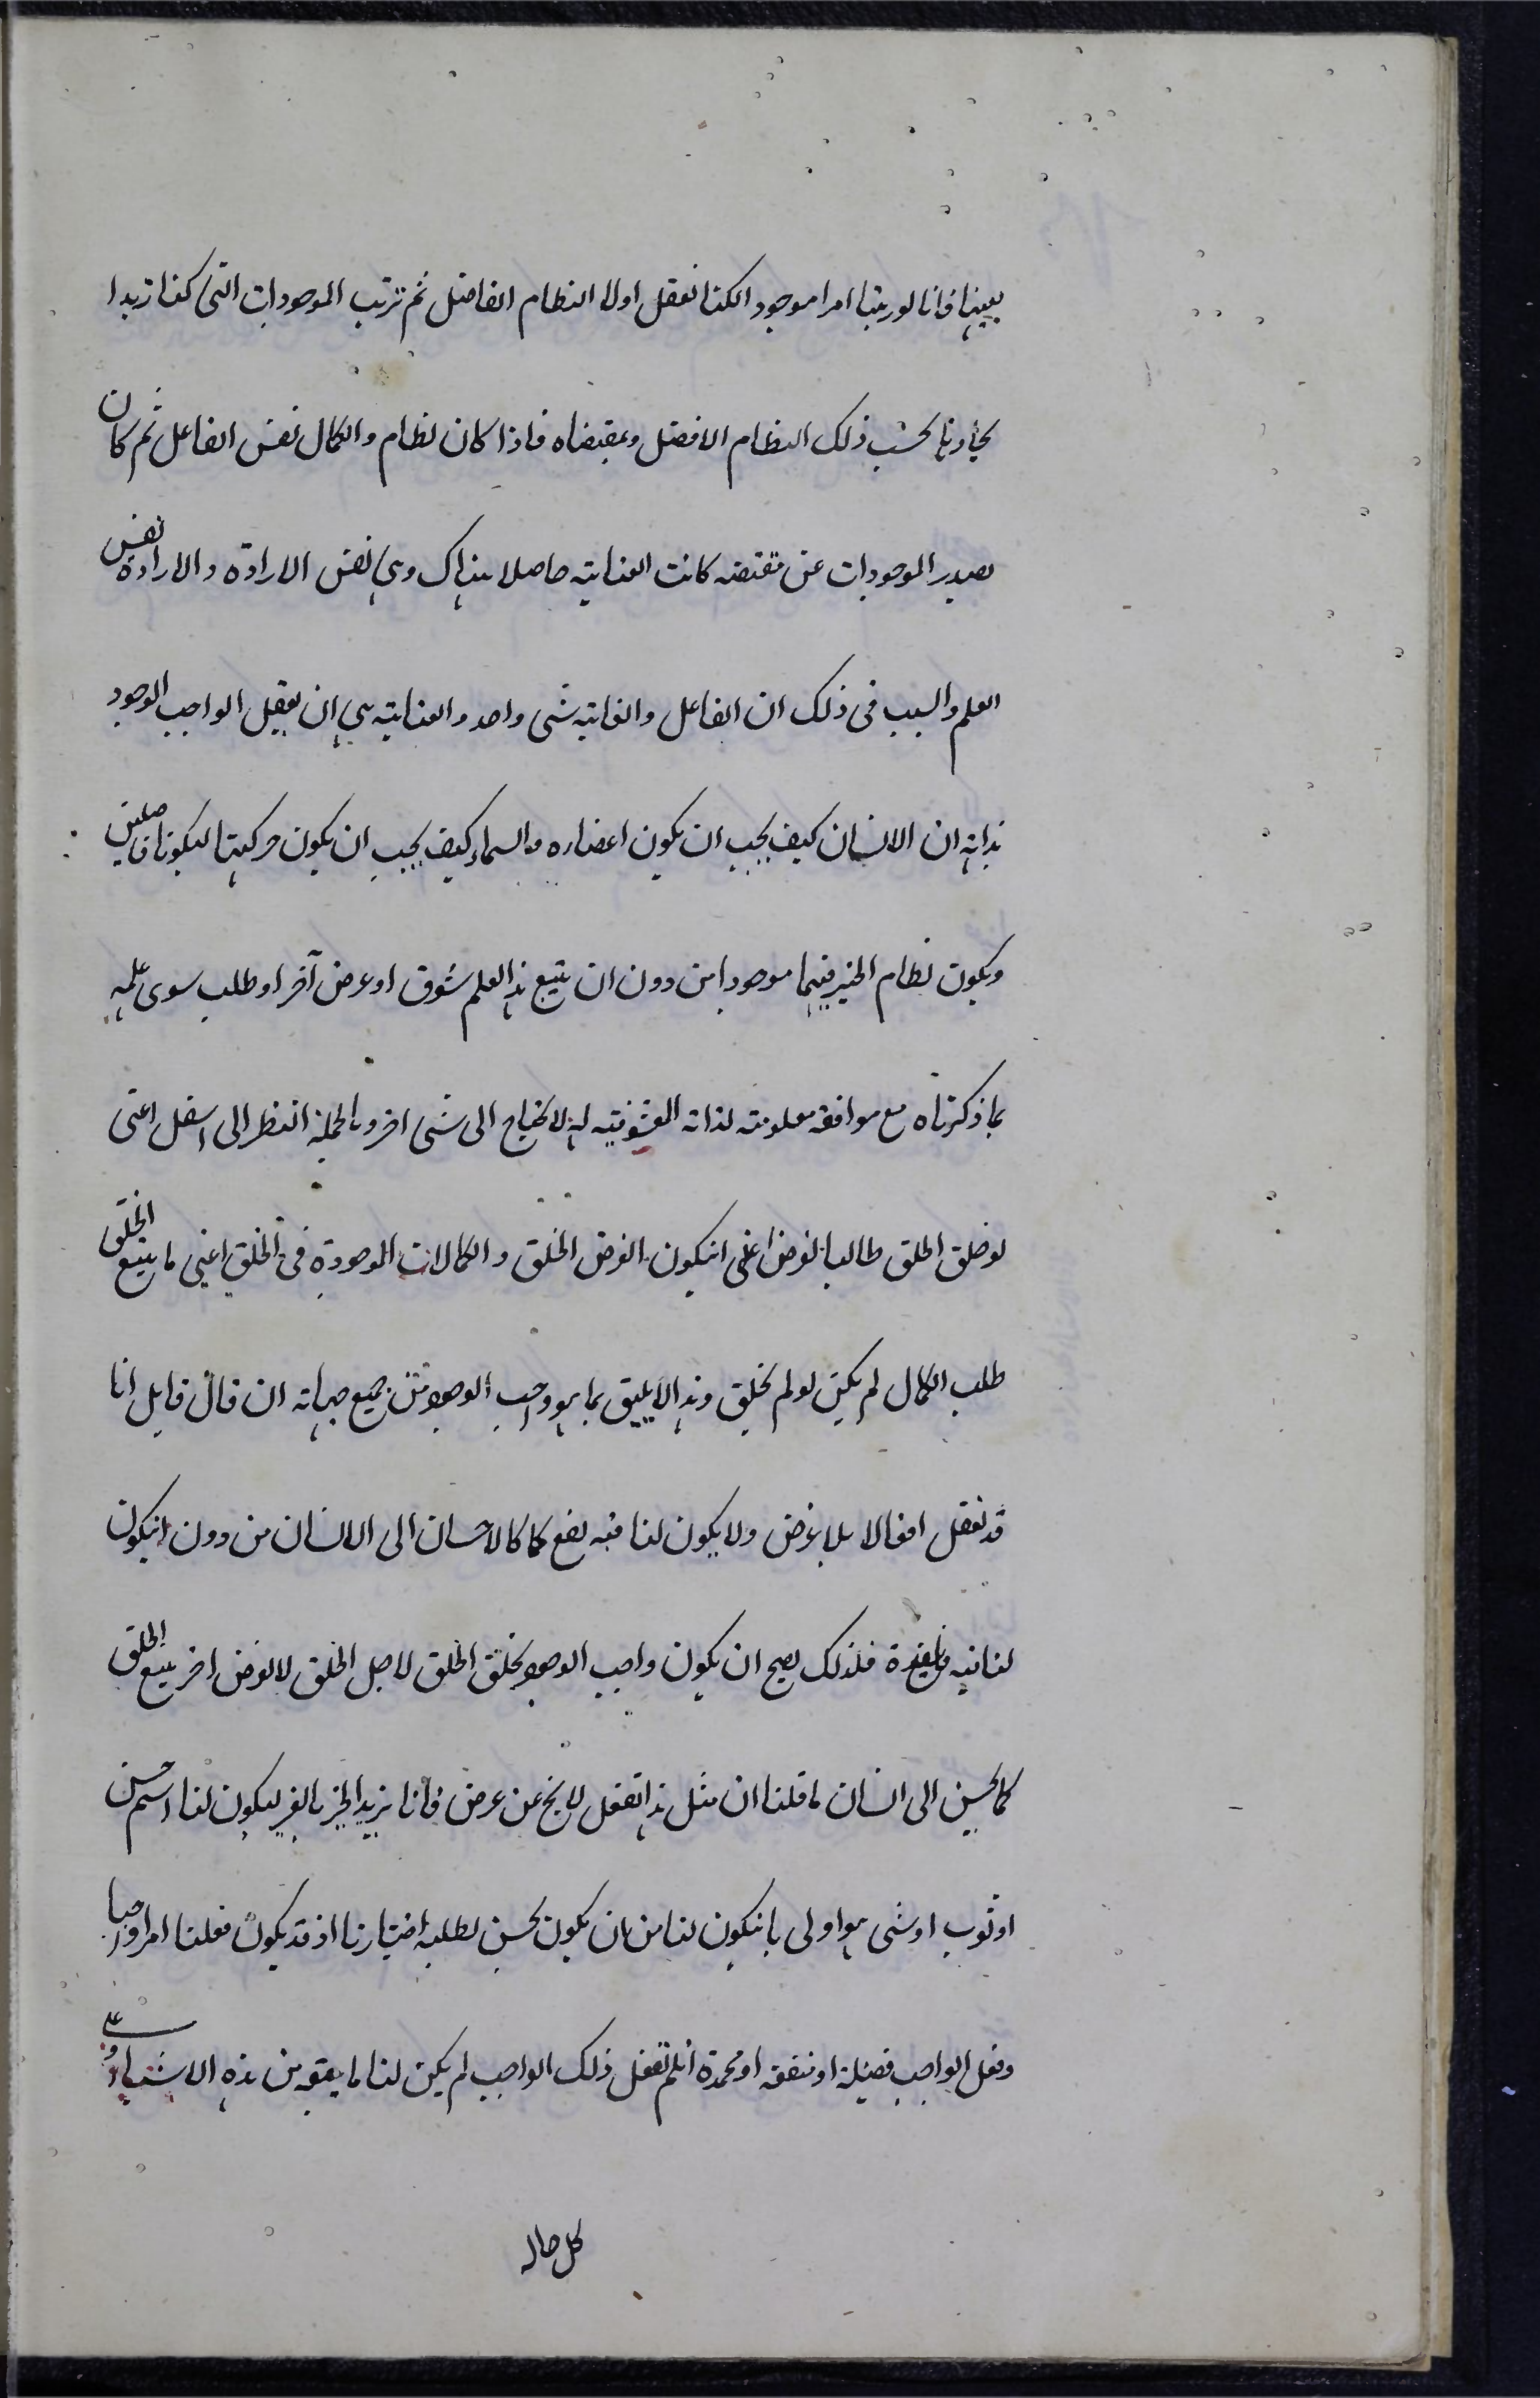 بعينها فانا لو رتبنا امرا موجودا لكنا نعقل اولا النظام الفاضل ثم ترتب الموجودات التى كنا نريد ا
يجادها بحسب ذلك النظام الافضل وبمقتضاه فاذا كان نظام والكمال نفس الفاعل ثم كان
يصدر الموجودات عن مقتضه كانت العناية حاصلا هناك وهى نفس الارادة والارادة نفس
العلم والسبب فى ذلك ان الفاعل والغاية شى واحد والعناية هى ان يعقل الواجب الوجود
بذاته ان الانسان كيف يجب ان يكون اعضاره والسماء كيف يجب ان يكون حركيتها ليكونا فاضلين
ويكون نظام الخير فيهما موجودا من دون ان يتبع هذا العلم شوق او عرض آخر او طلب سوى علمه
بما ذكرناه مع موافقة معلومته لذاته المعشوقية له لا يحتاج الى شى اخر وبالجملة النظر الى اسفل اعنى
لو خلق الخلق طالبا لغرض اعنى انيكون الغرض الخلق والكمالات الموجودة فى الخلق اعنى ما يتبع الخلق
طلب الكمال لم يكن لو لم يخلق وهذا لا يليق بما هو واجب الوجود من جميع جهاته ان قال قايل انا
قد نفعل افعالا بلا غرض ولا يكون لنا فيه نفع كما كالاحسان الى الانسان من دون انيكون
لنا فيه فايدة فلذلك يصح ان يكون واجب الوجود يخلق الخلق لاجل الخلق لا لغرض اخر يتبع الخلق
كما يحسن الى انسان ما قلنا ان مثل هذا الفعل لا يخ عن عرض فانا نريد الخير بالغير ليكون لنا اسم حسن
او ثوب او شى هو اولى بانيكون لنا من ان يكون يحسن لطلبه اختيارنا اذ قد يكون فعلنا امرا واجبا
وفعل الواجب فضيلة او منفعة او محمدة انلم نفعل ذلك الواجب لم يكن لنا ما يتبعه من هذه الاشياء وعلى
كل حال